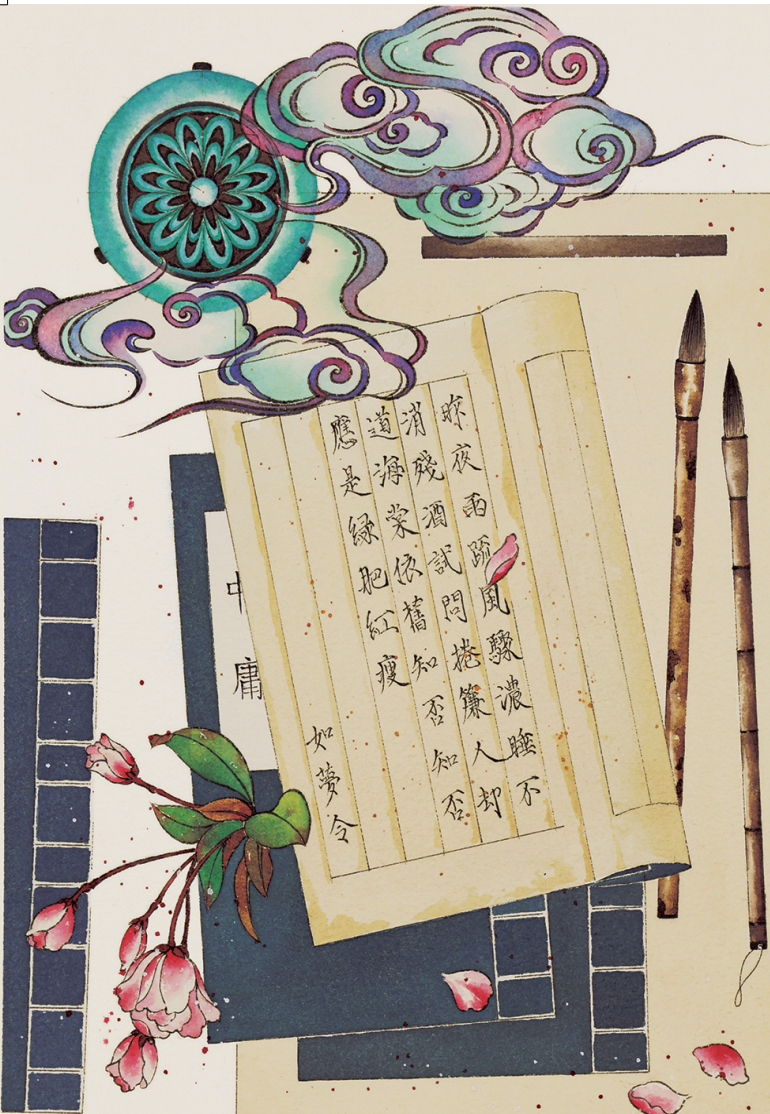 昨夜雨疏風驟濃睡不
消殘酒試問捲簾人却
道海棠依舊知否知否
應是綠肥紅瘦
如夢令
中庸